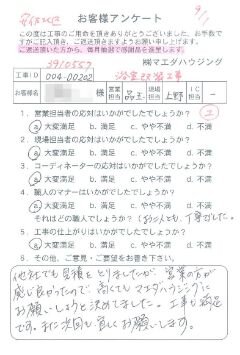 安佐北区
9/1
お客様アンケート
この度は工事のご用命を頂きありがとうございました。お手数で
すがご記入頂き、ご返送頂きますようお願い申し上げます。
ご返送頂いた方から、毎月抽選で感謝品を進呈します。
3910557
㈱マエダハウジング
工事ID 004-00202 浴室改装工事
お客様名 様 営業担当 工担当 上野 IC担当
1. 営業担当者の応対はいかがでしたでしょうか?
a 大変満足 b. 満足 c. やや不満 d. 不満
2. 現場担当者の応対はいかがでしたでしょうか?
a 大変満足 b. 満足 c. やや不満 d. 不満
3. コーディネーターの応対はいかがでしたでしょうか?
a 大変満足 b. 満足 c. やや不満 d. 不満
4. 職人のマナーはいかがでしたでしょうか?
a 大変満足 b. 満足 c. やや不満 d. 不満
それはどの職人でしょうか?
5. 工事の仕上がりはいかがでしたでしょうか?
a 大変満足 b. 満足 c. やや不満 d. 不満
6. その他、ご意見・ご要望をお書き下さい。
他社でも見積をとりましたが、営業の方が
感じ良かったので、高くてもマエダハウジングに
お願いしようと決めてました。工事も満足
です。また次回も宜しくお願いします。